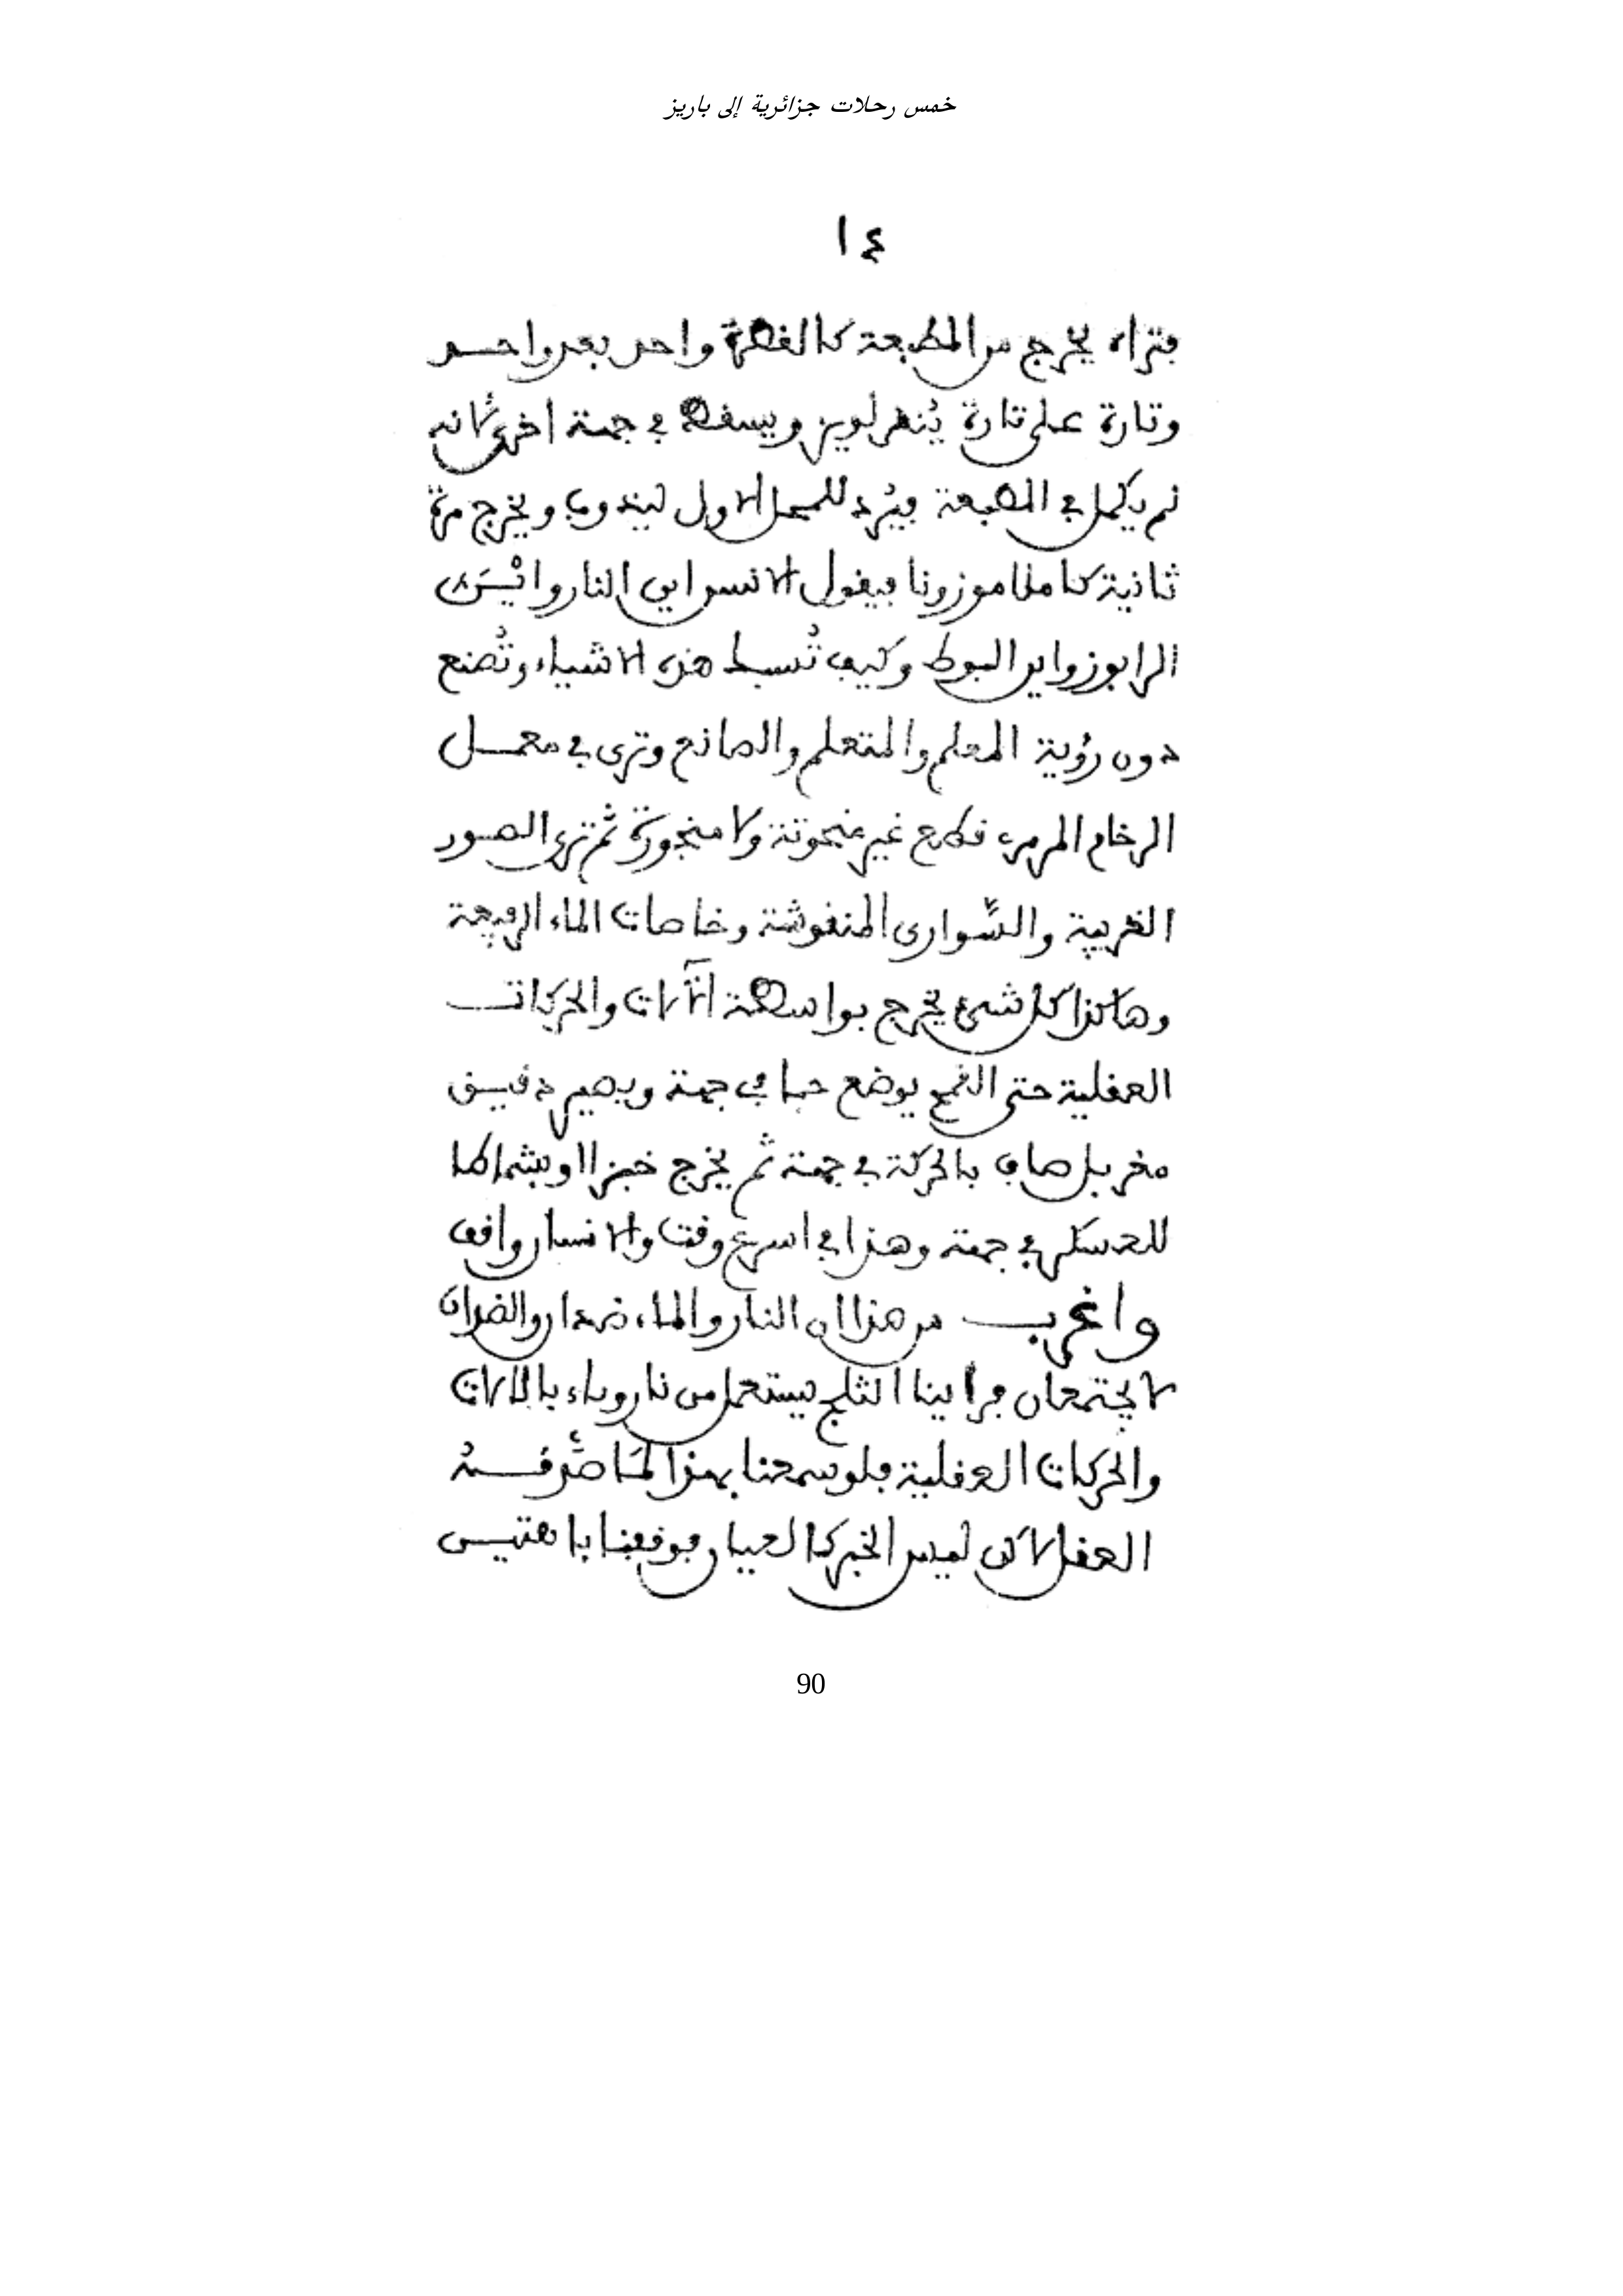 خمس رحلات جزائرية إلى باريز
١٤
فتراه يخرج من المطبعة كالقطرة واحد بعد واحد
وتارة على تارة يُنهر لويز ويسقط في جهة اخرى كانه
لم يكمل في المطبعة فيُرد للمحل الاول ليذوب ويخرج مرة
ثانية كاملا موزونا فيقول الانس اين النار وايْسَ
الرابوز واين البوط وكيف تُسبط هذه الاشياء وتُصنع
دون رؤية المعلم والمتعلم والصانع وترى في معمل
الرخام المرمر قطع غير منحوتة ولا منجورة ثم ترى الصور
الغريبة والسَّوارى المنقوشة وخاصات الماء الرفيعة
وهاكذا كل شيء يخرج بواسطة الآلات والحركات
العقلية حتى القمح يوضع حبا في جهة ويصير دقيق
مغربل صاف بالحركة في جهة ثم يخرج خبزا او بشماطا
للعسكر في جهة وهذا في اسرع وقت والانسان واقف
واغرب من هذا ان النار والماء ضدان والضدان
لا يجتمعان فراينا الثلج يستعمل من نار وماء بالالات
والحركات العقلية فلو سمعنا بهذا لمَا صَدَّقه
العقل لاكن ليس الخبر كالعيان فوقفنا باهتيس
90